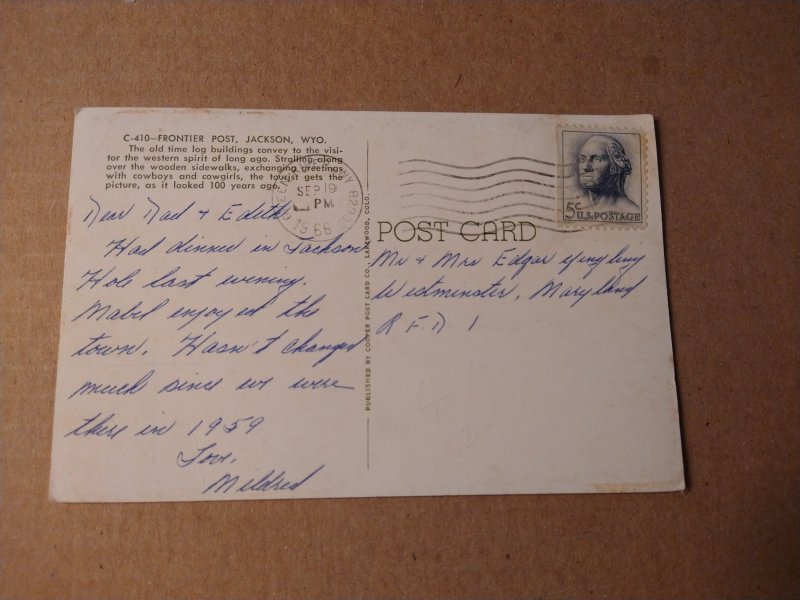 C-410—FRONTIER POST, JACKSON, WYO.
The old time log buildings convey to the visi-
tor the western spirit of long ago. Strolling along
over the wooden sidewalks, exchanging greetings
with cowboys and cowgirls, the tourist gets the
picture, as it looked 100 years ago.
SEP 19
PM
1966
5c U.S. POSTAGE
POST CARD
Dear Dad & Edith
Had dinner in Jackson
Hole last evening.
Mabel enjoyed the
town. Hasn't changed
much since we were
there in 1959
Love,
Mildred
PUBLISHED BY COOPER POST CARD CO., LAKEWOOD, COLO.
Mr & Mrs Edgar Yingling
Westminster, Maryland
R F D 1